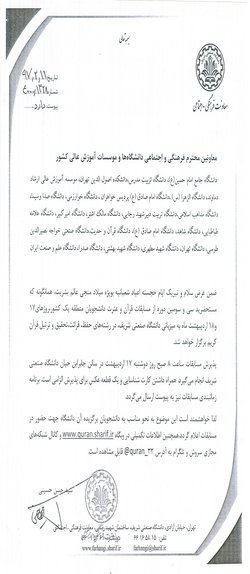 بسمه تعالی
معاونت فرهنگی و اجتماعی
تاریخ:
شماره:
پیوست: دارد
معاونین محترم فرهنگی و اجتماعی دانشگاه‌ها و موسسات آموزش عالی کشور
دانشگاه جامع امام حسین(ع)، دانشگاه تربیت مدرس، دانشکده اصول الدین تهران، موسسه آموزش عالی ارشاد
دماوند، دانشگاه الزهرا (س)، دانشگاه امام صادق (ع) پردیس خواهران، دانشگاه خوارزمی، دانشگاه صدا وسیما،
دانشگاه مذاهب اسلامی، دانشگاه تربیت دبیر شهید رجایی، دانشگاه مالک اشتر، دانشگاه امیرکبیر، دانشگاه علامه
طباطبایی، دانشگاه شاهد، دانشگاه امام صادق (ع)، دانشگاه قرآن و حدیث، دانشگاه صنعتی خواجه نصیرالدین
طوسی، دانشگاه تهران، دانشگاه شهید مطهری، دانشگاه شهید بهشتی، دانشگاه صدرا، دانشگاه علم و صنعت ایران
ضمن عرض سلام و تبریک ایام خجسته اعیاد شعبانیه بویژه میلاد منجی عالم بشریت، همانگونه که
مستحضرید سی و سومین دوره از مسابقات قرآن و عترت دانشجویان منطقه یک کشور روزهای ۱۷
و ۱۸ اردیبهشت ماه به میزبانی دانشگاه صنعتی شریف در رشته‌های حفظ، قرائت، تحقیق و ترتیل قرآن
کریم برگزار خواهد شد.
پذیرش مسابقات ساعت ۸ صبح روز دوشنبه ۱۷ اردیبهشت در سالن جابرابن حیان دانشگاه صنعتی
شریف انجام می‌گیرد. همراه داشتن کارت شناسایی و یک قطعه عکس برای پذیرش الزامی است. برنامه
زمانبندی مسابقات نیز به پیوست ارسال می‌گردد.
لذا خواهشمند است این موضوع به نحو مناسب به دانشجویان برگزیده آن دانشگاه جهت حضور در
مسابقات اعلام گردد. همچنین اطلاعات تکمیلی در وبگاه www.quran.sharif.ir و کانال شبکه‌های
مجازی سروش و تلگرام به آدرس @quran_۳۳ قابل مشاهده است.
سید حسن حسینی
تهران، خیابان آزادی، دانشگاه صنعتی شریف، ساختمان شهید رضایی، معاونت فرهنگی و اجتماعی
farhangi.sharif.ir farhangi@sharif.ir